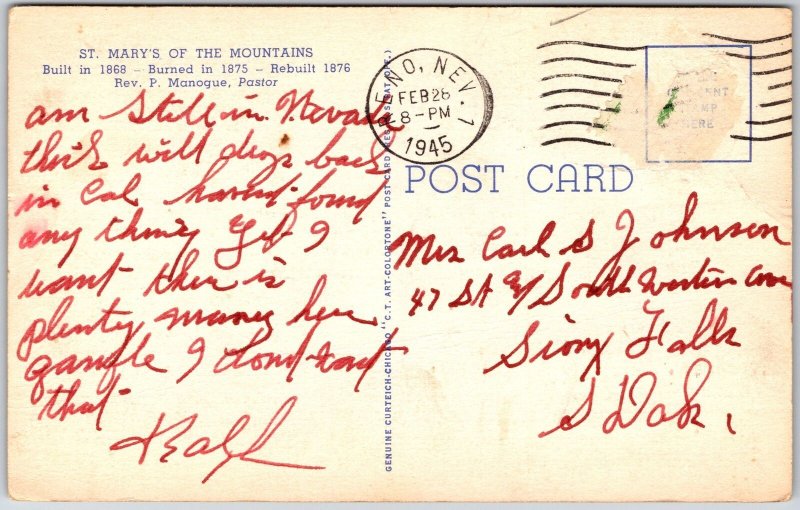 ST. MARY'S OF THE MOUNTAINS
Built in 1868 – Burned in 1875 – Rebuilt 1876
Rev. P. Manogue, Pastor
am still in Nevada
think will drop back
in Cal havent found
any thing Yet I
want ther is
plenty money here
gamble I dont want
that
Ralph
GENUINE CURTEICH-CHICAGO "C.T. ART-COLORTONE" POST CARD (REG. U.S. PAT. OFF.)
RENO, NEV. 1
FEB 28
8-PM
1945
POST CARD
Mrs Carl S Johnson
47 St & South Western Ave
Sioux Falls
S Dak.